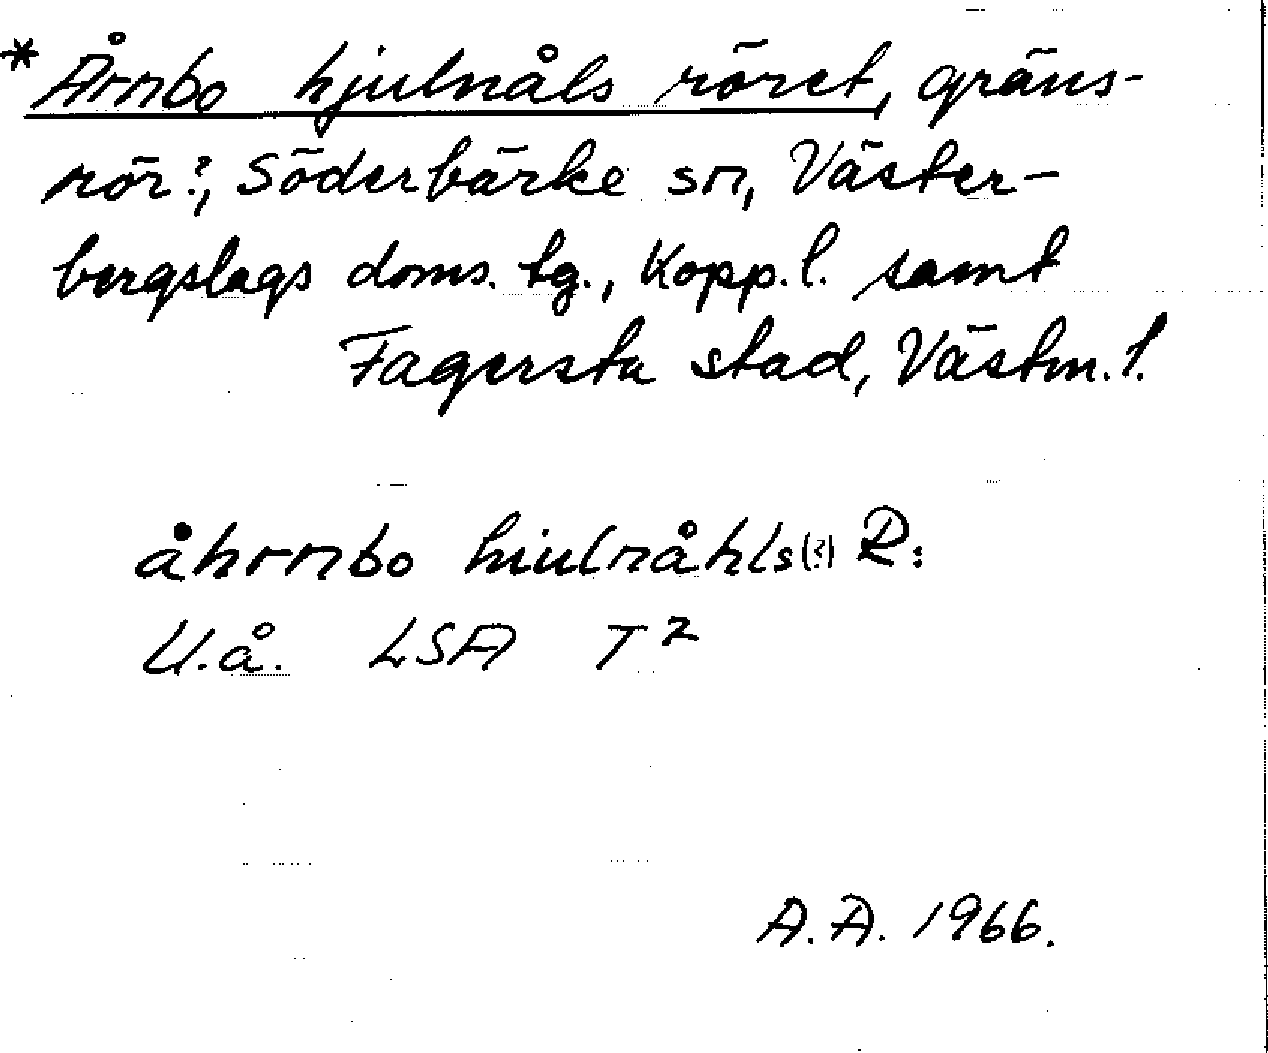 * Årnbo hjulnåls röret, gräns-
rör?, Söderbärke sn, Väster-
bergslags doms. tg., Kopp.l. samt
Fagersta stad, Västm. l.
åhrnbo hiulnåhls(?) R:
U.å. LSA T²
A.A. 1966.